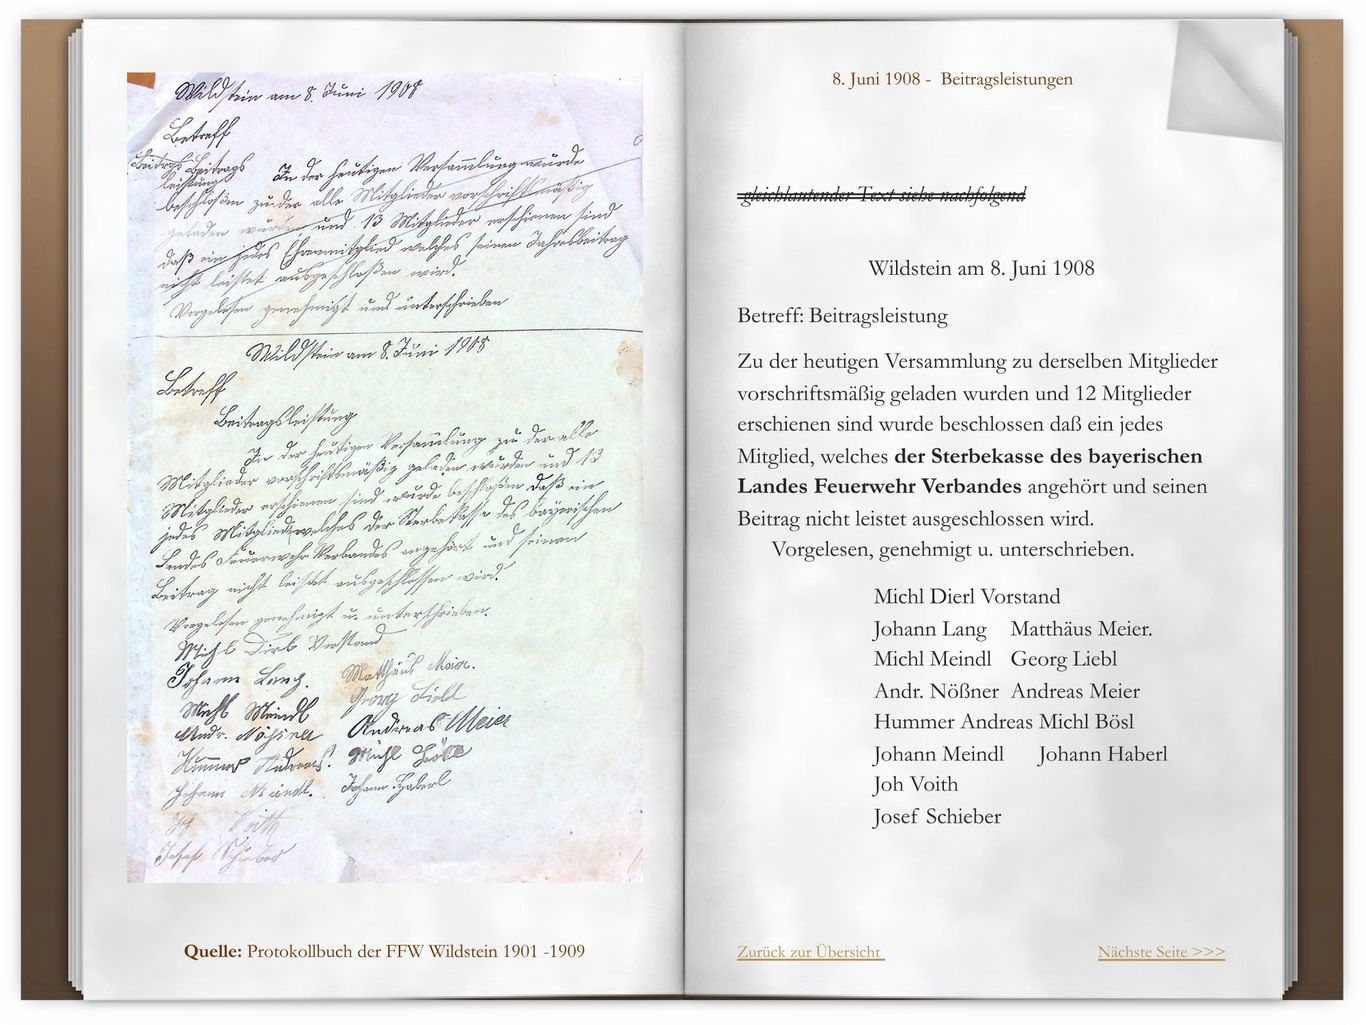 Wildstein am 8. Juni 1908
Betreff
Beitrags Beitrags
leistung In der heutigen Versammlung wurde
beschloßen zu der alle Mitglieder vorschriftsmäßig
geladen wurden und 13 Mitglieder erschienen sind
daß ein jedes Ehrenmitglied welches seinen Jahresbeitrag
nicht leistet ausgeschloßen wird.
Vorgelesen genehmigt und unterschrieben
Wildstein am 8. Juni 1908
Betreff
Beitragsleistung
In der heutigen Versammlung zu der alle
Mitglieder vorschriftsmäßig geladen wurden und 13
Mitglieder erschienen sind wurde beschloßen daß ein
jedes Mitglied welches der Sterbekasse des bayerischen
Landes Feuerwehr Verbandes angehört und seinen
Beitrag nicht leistet ausgeschlossen wird.
Vorgelesen genehmigt u. unterschrieben.
Michl Dirl Vorstand
Johann Lang. Matthäus Meier.
Michl Meindl Georg Liebl
Andr. Nößner Andreas Meier
Hummer Andreas. Michl Bösl
Johann Meindl. Johann Haberl
Joh Voith
Josef Schieber
Quelle: Protokollbuch der FFW Wildstein 1901 -1909
8. Juni 1908 - Beitragsleistungen
gleichlautender Text siehe nachfolgend
Wildstein am 8. Juni 1908
Betreff: Beitragsleistung
Zu der heutigen Versammlung zu derselben Mitglieder
vorschriftsmäßig geladen wurden und 12 Mitglieder
erschienen sind wurde beschlossen daß ein jedes
Mitglied, welches der Sterbekasse des bayerischen
Landes Feuerwehr Verbandes angehört und seinen
Beitrag nicht leistet ausgeschlossen wird.
Vorgelesen, genehmigt u. unterschrieben.
Michl Dierl Vorstand
Johann Lang Matthäus Meier.
Michl Meindl Georg Liebl
Andr. Nößner Andreas Meier
Hummer Andreas Michl Bösl
Johann Meindl Johann Haberl
Joh Voith
Josef Schieber
Zurück zur Übersicht
Nächste Seite >>>